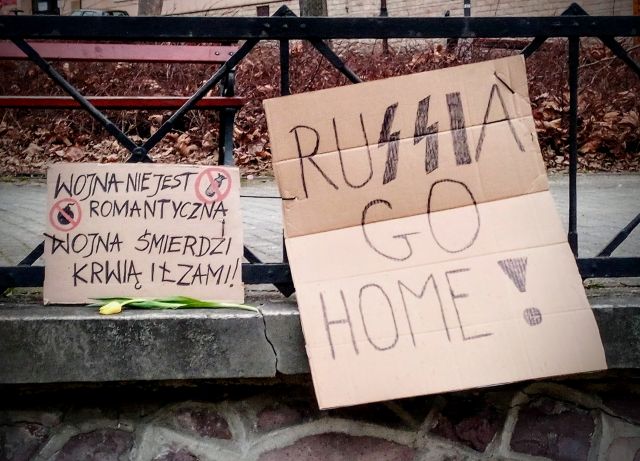 WOJNA NIE JEST
ROMANTYCZNA
WOJNA ŚMIERDZI
KRWIĄ I ŁZAMI!
RUSSIA
GO
HOME!